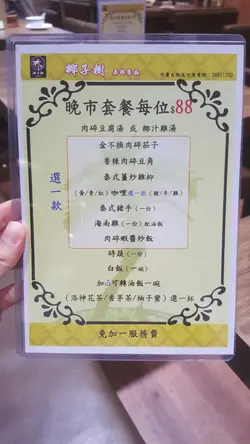 椰子樹
晚市套餐每位$88
肉碎豆腐湯 或 椰汁雞湯
選一款
金不換肉碎茄子
香辣肉碎豆角
泰式薑炒雞柳
(黃/青/紅) 咖哩選一款 (豬/牛/雞)
泰式豬手 (一份)
海南雞 (一份) 配油飯
肉碎蝦醬炒飯
時蔬 (一份)
白飯 (一碗)
加$5可轉油飯一碗
(洛神花茶/香茅茶/柚子蜜) 選一杯
免加一服務費